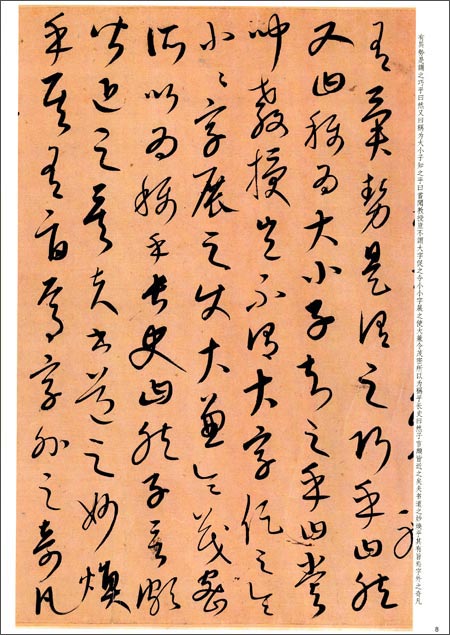 有異勢是謂之巧乎曰然又曰稱为大小子知之乎曰嘗聞教授豈不謂大字促之令小小字展之使大兼令茂密所以为稱乎長史曰然子言頗皆近之矣夫书道之妙煥乎其有旨焉字外之奇凡
有異勢是謂之巧乎曰然
又曰稱為大小子知之乎曰嘗
聞教授豈不謂大字促之令
小〻字展之使大兼令茂密
所以為稱乎長史曰然子言頗
皆近之矣夫書道之妙煥
乎其有旨焉字外之奇凡
8